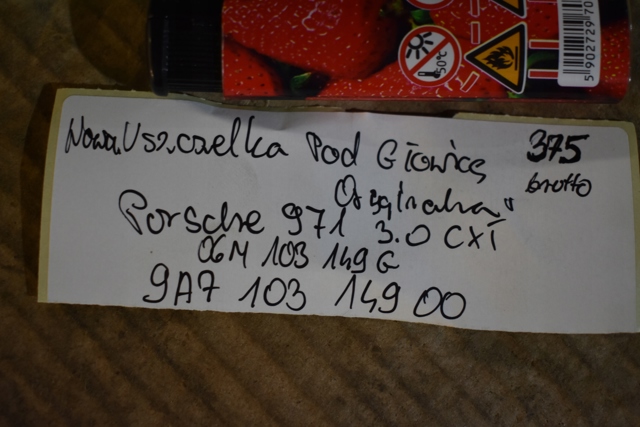 50°C
5 902729 70
Nowa Uszczelka Pod Głowicę 375
brutto
Oryginalna"
Porsche 971 3.0 CXT
06M 103 149G
9A7 103 149 00